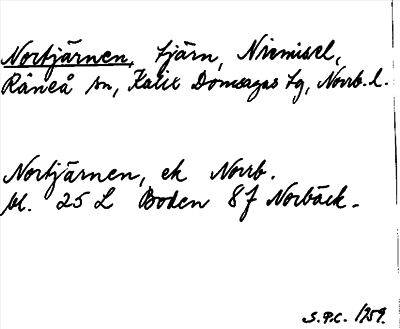 Nortjärnen, tjärn, Niemisel,
Råneå sn, Kalix Domsagas tg, Norrb. l.
Nortjärnen, ek Norrb.
bl. 25 L Boden 8 f Norbäck.
S.P.C. 1959.